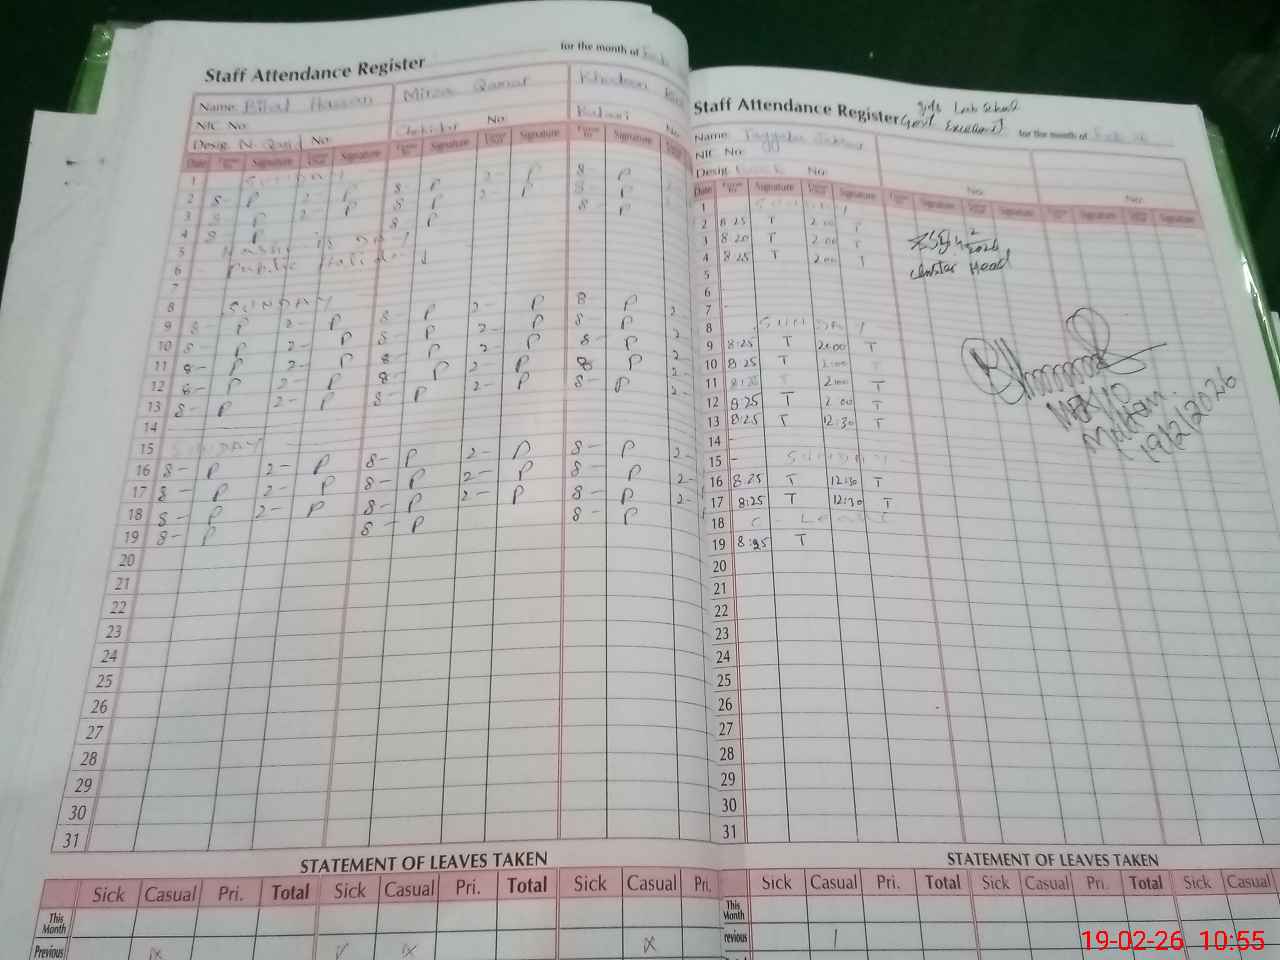 Staff Attendance Register for the month of Feb
Name: Bilal Hassan Mirza Qamar
NIC No. No.
Desig. N. Qasid No. Chokidar
Date Signature Signature Signature
1 SUNDAY
2 8- P 2- P 8- P 2- P 8- P
3 8- P 2- P 8- P 2- P 8- P
4 8- P 8- P 8- P
5
6 Public Holiday
7
8 SUNDAY
9 8- P 2- P 8- P 2- P 8- P 2-
10 8- P 2- P 8- P 2- P 8- P 2-
11 8- P 2- P 8- P 2- P 8- P 2-
12 8- P 2- P 8- P 2- P 8- P 2-
13 8- P 2- P 8- P 2- P 8- P 2-
14
15 SUNDAY
16 8- P 2- P 8- P 2- P 8- P 2-
17 8- P 2- P 8- P 2- P 8- P 2-
18 8- P 2- P 8- P 2- P 8- P 2-
19 8- P 8- P 8- P
20
21
22
23
24
25
26
27
28
29
30
31
STATEMENT OF LEAVES TAKEN
Sick Casual Pri. Total Sick Casual Pri. Total Sick Casual Pri.
This Month
Previous
Staff Attendance Register Girls Lab School
Govt for the month of Feb
Name:
NIC No.
Desig. No. No. No.
Date Signature Signature Signature Signature Signature Signature
1 SUNDAY
2 8:25 T 2:00 T
3 8:20 T 2:00 T
4 8:25 T 2:00 T
2/2026
Cluster Head
5
6
7
8 SUNDAY
9 8:25 T 2:00 T
10 8:25 T 2:00 T
11 8:25 T 2:00 T
12 8:25 T 2:00 T
13 8:25 T 12:30 T
14
15 SUNDAY
19/2/2026
16 8:25 T 12:30 T
17 8:25 T 12:30 T
18 C. Leave
19 8:25 T
20
21
22
23
24
25
26
27
28
29
30
31
STATEMENT OF LEAVES TAKEN
Sick Casual Pri. Total Sick Casual Pri. Total Sick Casual
This Month
revious 1
19-02-26 10:55